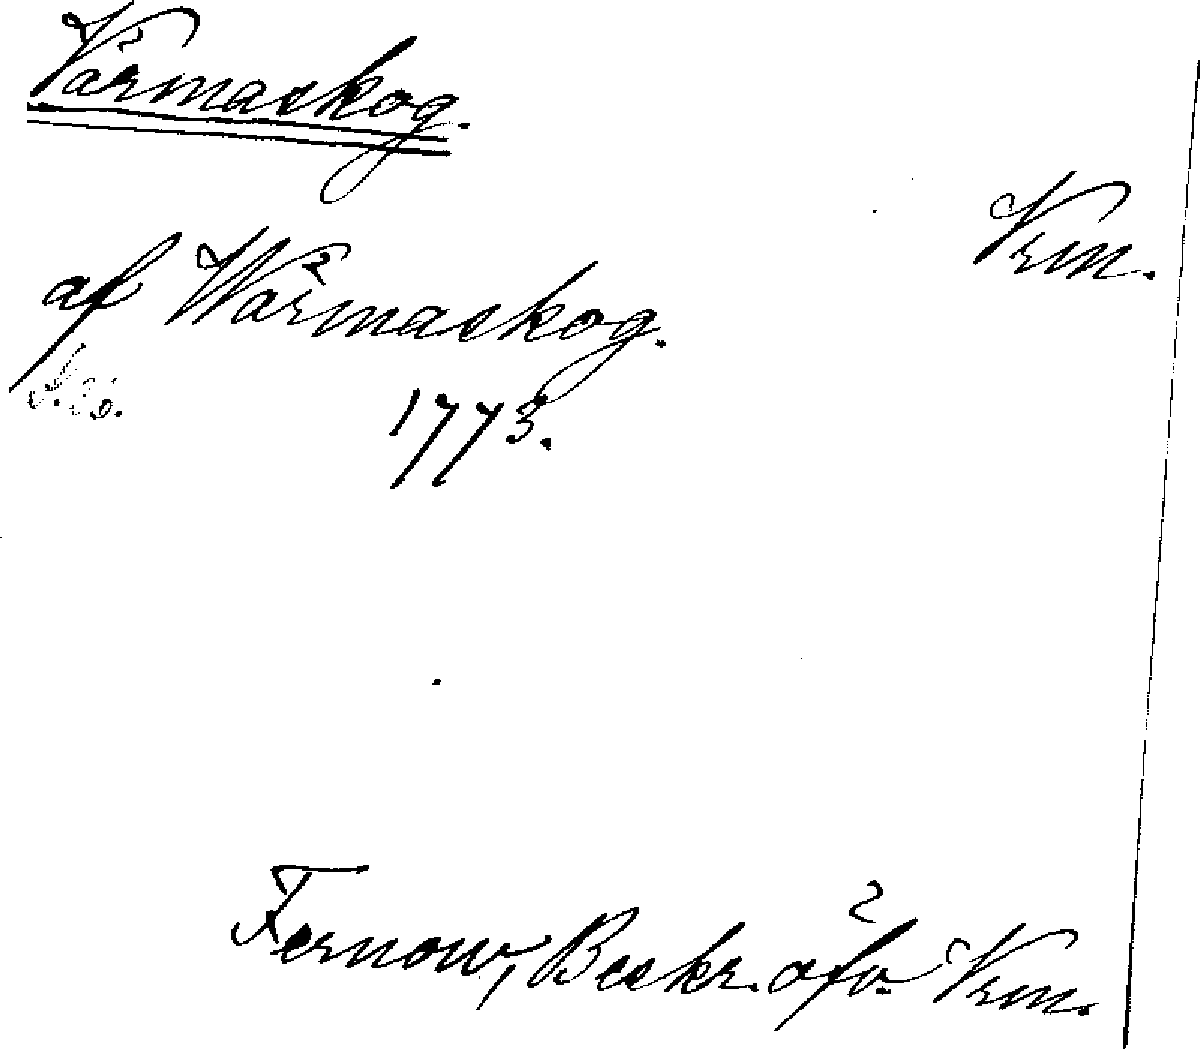 Värmaskog.
Vrm.
af Wärmaskog.
1773.
Fernow, Beskr. öfv. Vrm.